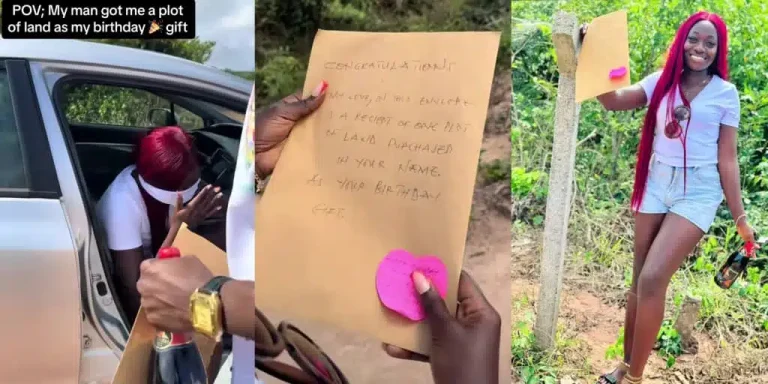 POV; My man got me a plot
of land as my birthday 🎉 gift
CONGRATULATIONS
IS A RECEIPT OF ONE PLOT
OF LAND PURCHASED
IN YOUR NAME
AS YOUR BIRTHDAY
GIFT.